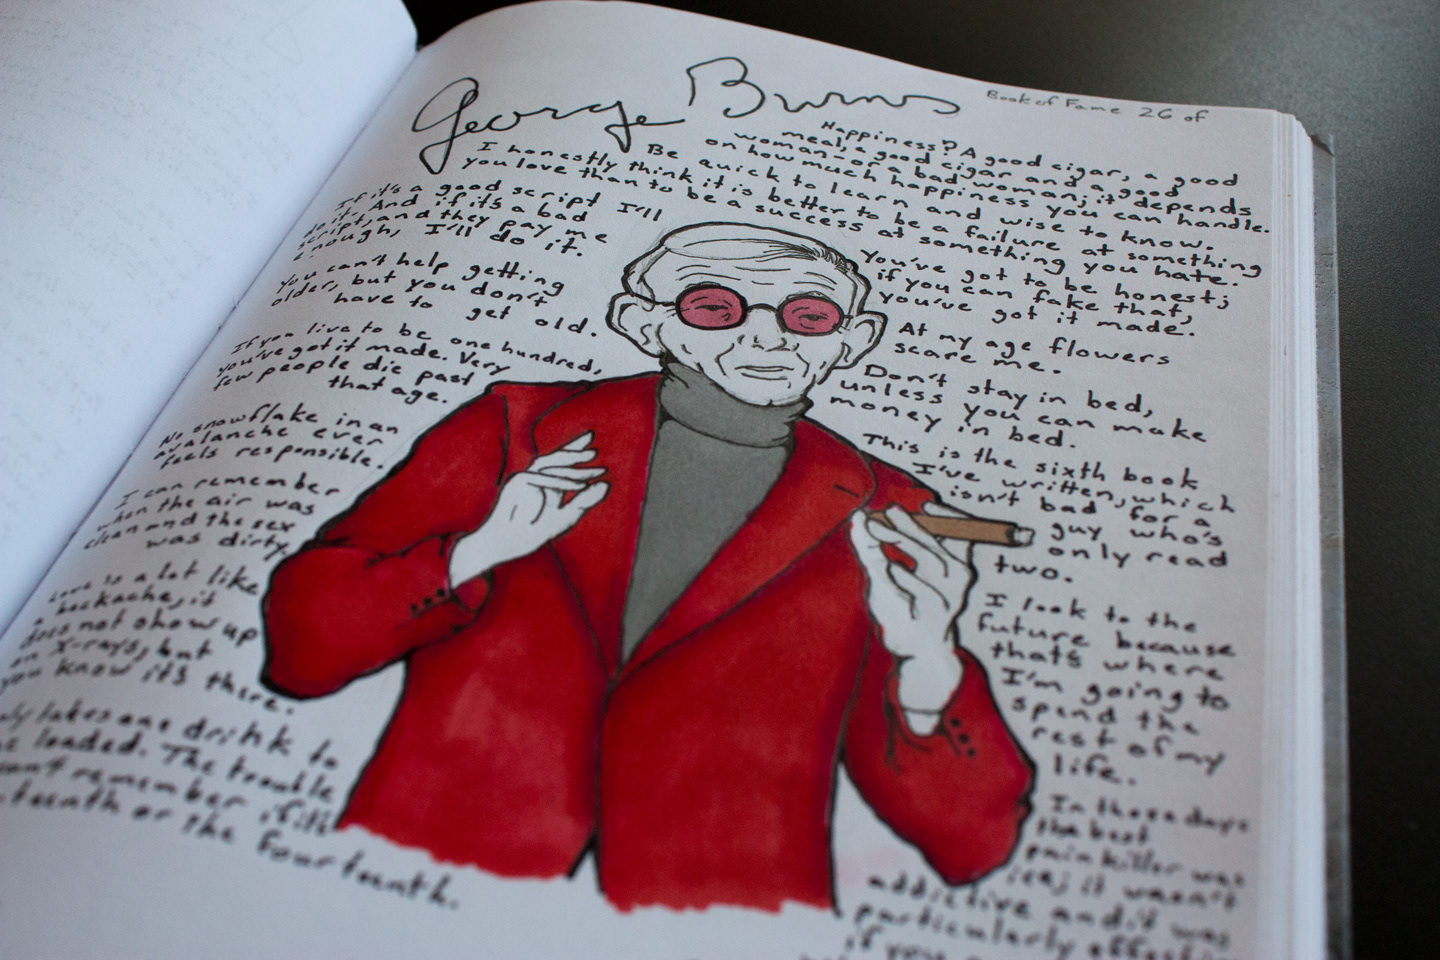 George Burns
Book of Fame 26 of
Happiness? A good cigar, a good
meal, a good cigar and a good
woman - or a bad woman; it depends
on how much happiness you can handle.
Be quick to learn and wise to know.
I honestly think it is better to be a failure at something
you love than to be a success at something you hate.
If it's a good script I'll
do it. And if it's a bad
script, and they pay me
enough, I'll do it.
You can't help getting
older, but you don't
have to get old.
If you live to be one hundred,
you've got it made. Very
few people die past
that age.
No snowflake in an
avalanche ever
feels responsible.
I can remember
when the air was
clean and the sex
was dirty.
Love is a lot like
a backache, it
does not show up
on X-rays, but
you know it's there.
only takes one drink to
me loaded. The trouble
can't remember if it's
teenth or the fourteenth.
You've got to be honest;
if you can fake that,
you've got it made.
At my age flowers
scare me.
Don't stay in bed,
unless you can make
money in bed.
This is the sixth book
I've written, which
isn't bad for a
guy who's
only read
two.
I look to the
future because
that's where
I'm going to
spend the
rest of my
life.
In those days
the best
pain killer was
ice; it wasn't
addictive and it was
particularly effective
if you